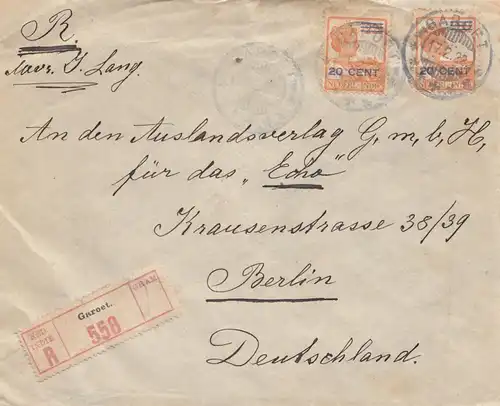 R.
J. Lang.
20 CENT
20 CENT
GAROET
An den Auslandsverlag G, m, b, H,
für das „Echo"
Krausenstrasse 38/39
Berlin
Deutschland.
NED INDIË
R
Garoet.
558